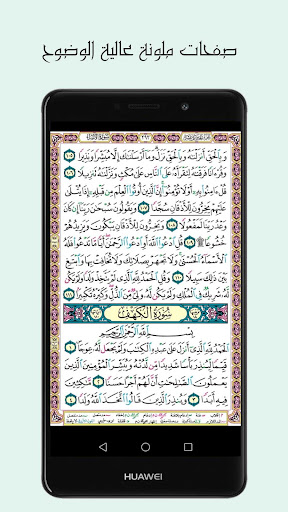 صفحات ملونة عالية الوضوح
وَبِٱلْحَقِّ أَنزَلْنَٰهُ وَبِٱلْحَقِّ نَزَلَ وَمَآ أَرْسَلْنَٰكَ إِلَّا مُبَشِّرًا وَنَذِيرًا
١٠٥ وَقُرْءَانًا فَرَقْنَٰهُ لِتَقْرَأَهُۥ عَلَى ٱلنَّاسِ عَلَىٰ مُكْثٍ وَنَزَّلْنَٰهُ تَنزِيلًا
١٠٦ قُلْ ءَامِنُوا۟ بِهِۦٓ أَوْ لَا تُؤْمِنُوٓا۟ إِنَّ ٱلَّذِينَ أُوتُوا۟ ٱلْعِلْمَ مِن قَبْلِهِۦٓ إِذَا يُتْلَىٰ
عَلَيْهِمْ يَخِرُّونَ لِلْأَذْقَانِ سُجَّدًا ١٠٧ وَيَقُولُونَ سُبْحَٰنَ رَبِّنَآ إِن كَانَ
وَعْدُ رَبِّنَا لَمَفْعُولًا ١٠٨ وَيَخِرُّونَ لِلْأَذْقَانِ يَبْكُونَ وَيَزِيدُهُمْ
خُشُوعًا ۩ ١٠٩ قُلِ ٱدْعُوا۟ ٱللَّهَ أَوِ ٱدْعُوا۟ ٱلرَّحْمَٰنَ أَيًّا مَّا تَدْعُوا۟ فَلَهُ
ٱلْأَسْمَآءُ ٱلْحُسْنَىٰ وَلَا تَجْهَرْ بِصَلَاتِكَ وَلَا تُخَافِتْ بِهَا وَٱبْتَغِ
بَيْنَ ذَٰلِكَ سَبِيلًا ١١٠ وَقُلِ ٱلْحَمْدُ لِلَّهِ ٱلَّذِى لَمْ يَتَّخِذْ وَلَدًا وَلَمْ يَكُن لَّهُۥ
شَرِيكٌ فِى ٱلْمُلْكِ وَلَمْ يَكُن لَّهُۥ وَلِىٌّ مِّنَ ٱلذُّلِّ وَكَبِّرْهُ تَكْبِيرًۢا ١١١
سُورَةُ ٱلْكَهْفِ
بِسْمِ ٱللَّهِ ٱلرَّحْمَٰنِ ٱلرَّحِيمِ
ٱلْحَمْدُ لِلَّهِ ٱلَّذِىٓ أَنزَلَ عَلَىٰ عَبْدِهِ ٱلْكِتَٰبَ وَلَمْ يَجْعَل لَّهُۥ عِوَجَا ١
قَيِّمًا لِّيُنذِرَ بَأْسًا شَدِيدًا مِّن لَّدُنْهُ وَيُبَشِّرَ ٱلْمُؤْمِنِينَ ٱلَّذِينَ
يَعْمَلُونَ ٱلصَّٰلِحَٰتِ أَنَّ لَهُمْ أَجْرًا حَسَنًا ٢ مَّٰكِثِينَ فِيهِ
أَبَدًا ٣ وَيُنذِرَ ٱلَّذِينَ قَالُوا۟ ٱتَّخَذَ ٱللَّهُ وَلَدًا ٤
HUAWEI